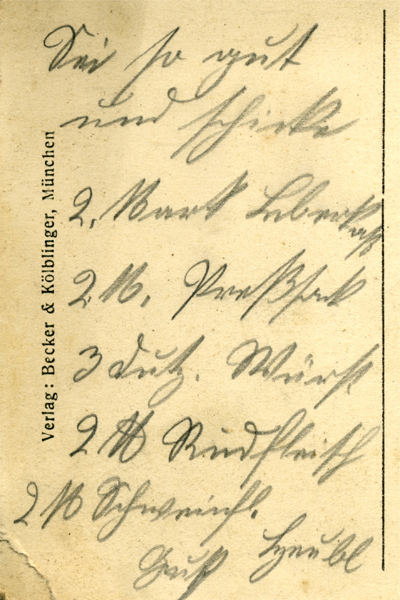 Sei so gut
und schicke
2. Mark Leberkäß
2 M. Preßsack
3 Dutz. Würst
2 ℔ Rindfleisch
2 ℔ Schweinfl.
Gruß
Verlag: Becker & Kölblinger, München